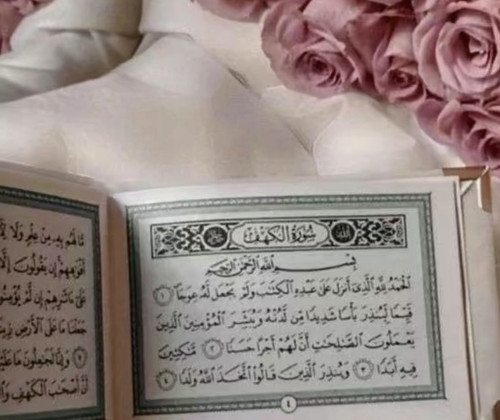 سُورَةُ الكَهْفِ
بِسْمِ ٱللَّهِ ٱلرَّحْمَٰنِ ٱلرَّحِيمِ
ٱلْحَمْدُ لِلَّهِ ٱلَّذِىٓ أَنزَلَ عَلَىٰ عَبْدِهِ ٱلْكِتَٰبَ وَلَمْ يَجْعَل لَّهُۥ عِوَجَا ۜ ١
قَيِّمًا لِّيُنذِرَ بَأْسًا شَدِيدًا مِّن لَّدُنْهُ وَيُبَشِّرَ ٱلْمُؤْمِنِينَ ٱلَّذِينَ
يَعْمَلُونَ ٱلصَّٰلِحَٰتِ أَنَّ لَهُمْ أَجْرًا حَسَنًا ٢ مَّٰكِثِينَ
فِيهِ أَبَدًا ٣ وَيُنذِرَ ٱلَّذِينَ قَالُوا۟ ٱتَّخَذَ ٱللَّهُ وَلَدًا ٤
٤
مَّا لَهُم بِهِۦ مِنْ عِلْمٍ وَلَا
أَفْوَٰهِهِمْ إِن يَقُولُونَ إِلَّا
عَلَىٰٓ ءَاثَٰرِهِمْ إِن لَّمْ يُؤْمِنُوا۟
جَعَلْنَا مَا عَلَى ٱلْأَرْضِ
٧ وَإِنَّا لَجَٰعِلُونَ مَا
أَنَّ أَصْحَٰبَ ٱلْكَهْفِ